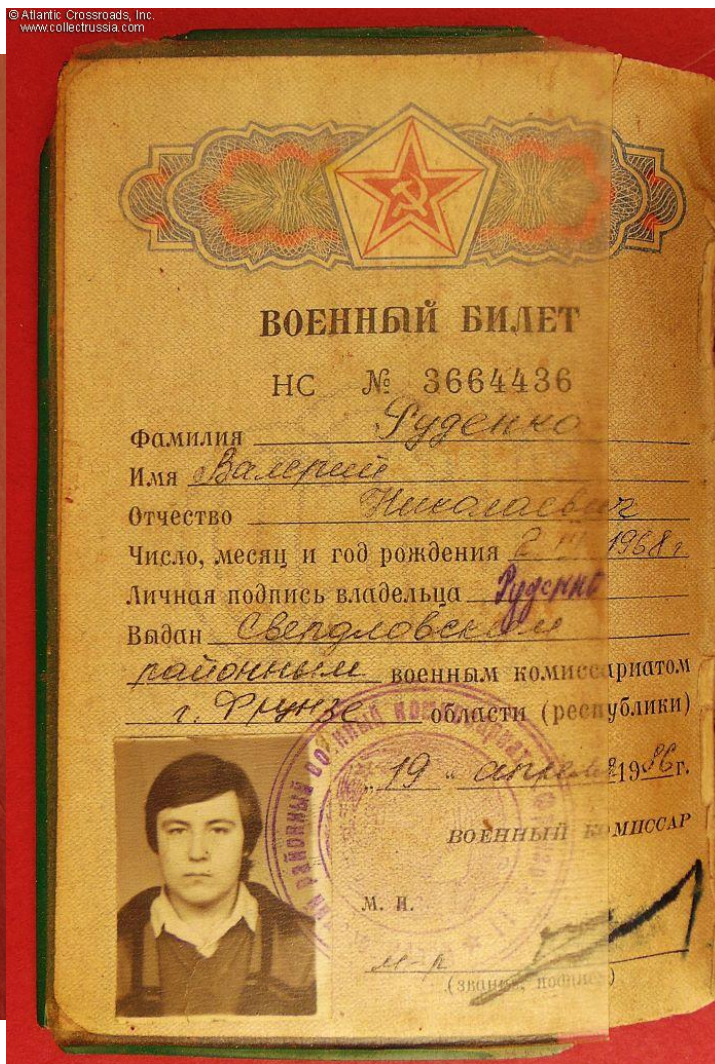 © Atlantic Crossroads, Inc.
www.collectrussia.com
ВОЕННЫЙ БИЛЕТ
НС № 3664436
Фамилия Руденко
Имя Валерий
Отчество Николаевич
Число, месяц и год рождения 1968 г
Личная подпись владельца Руденко
Выдан Свердловским
районным военным комиссариатом
г. Фрунзе области (республики)
„19" апреля 1986 г.
ВОЕННЫЙ КОМИССАР
М. П.
м-р
(звание, подпись)